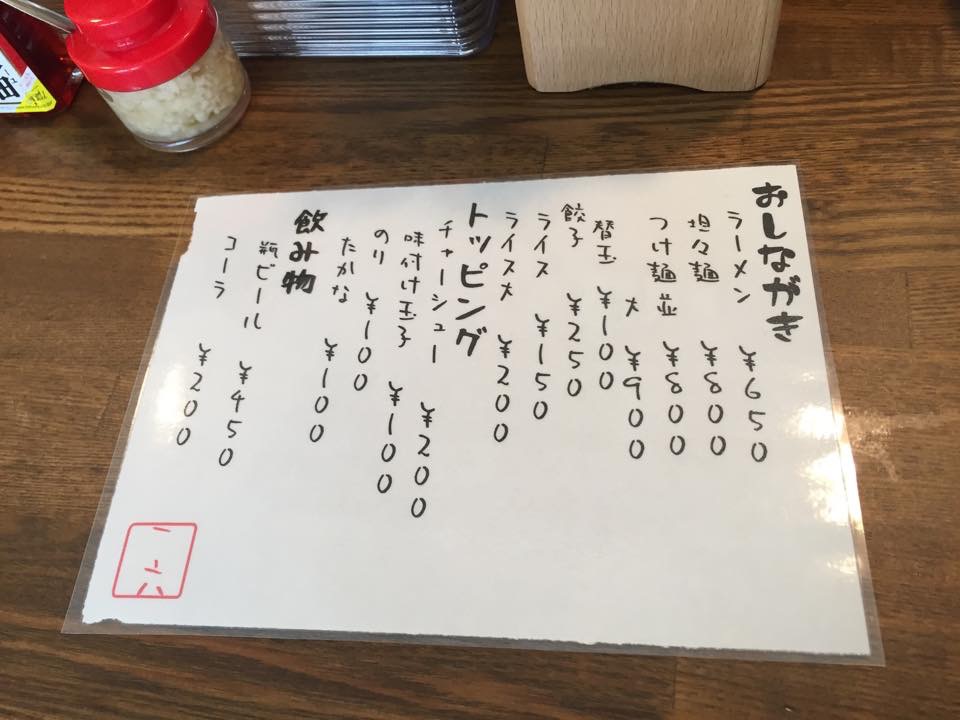 おしながき
ラーメン ¥650
坦々麺 ¥800
つけ麺 並 ¥800
大 ¥900
替玉 ¥100
餃子 ¥250
ライス ¥150
ライス大 ¥200
トッピング
チャーシュー ¥200
味付け玉子 ¥100
のり ¥100
たかな ¥100
飲み物
瓶ビール ¥450
コーラ ¥200
一六